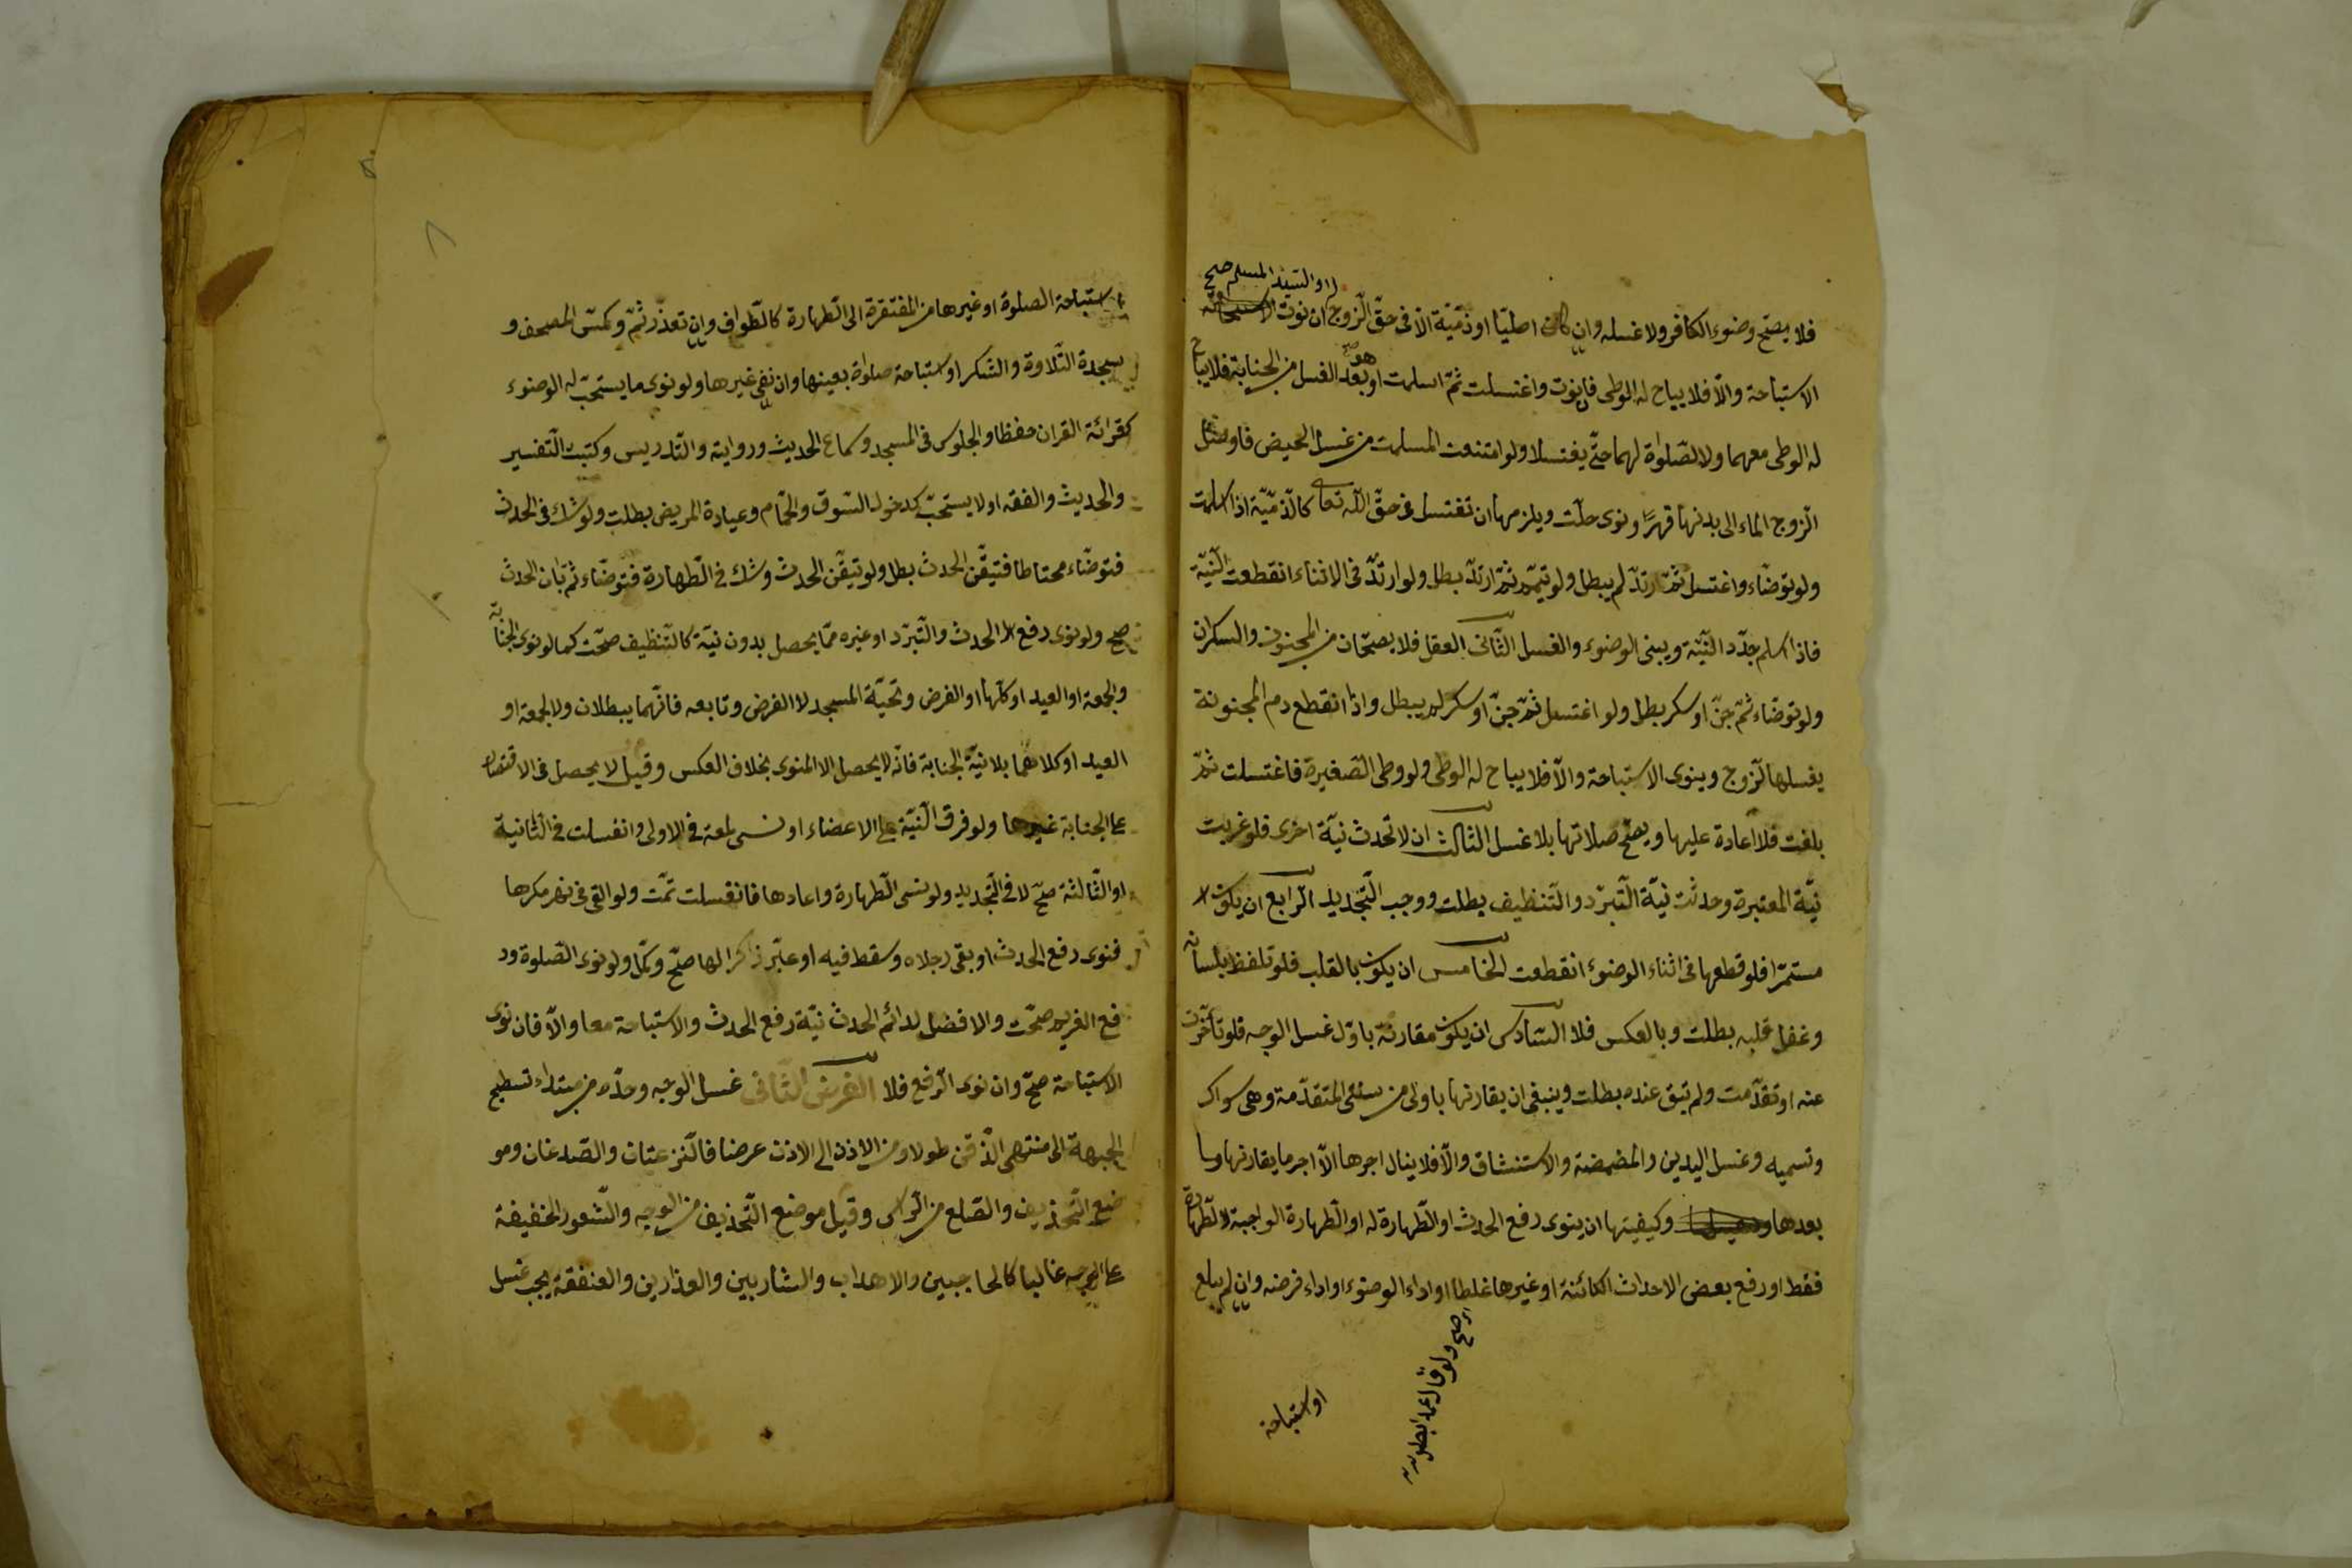 او السيد المسلم صح
فلا يصح وضوء الكافر ولا غسله وان كان اصليا او ذمية الا فى حق الزوج ان نوت
الاستباحة والا فلا يباح له الوطى فان نوت واغتسلت ثم اسلمت او هو بعد الغسل من الجنابة فلا يباح
له الوطى معهما ولا الصلوة لهما حتى يغتسلا ولو امتنعت المسلمت من غسل الحيض فاوصل
الزوج الماء الى بدنها قهرا ونوى حلت ويلزمها ان تغتسل عن حق الله تعا كالذمية اذا اسلمت
ولو توضاء واغتسل ثم ارتد لم يبطل ولو تيمم ثم ارتد بطل ولو ارتد فى الاثناء انقطعت النية
فاذا اسلم جدد النية ويبنى الوضوء والغسل الثانى العقل فلا يصحان من المجنون والسكران
ولو توضاء ثم جن او سكر بطل ولو اغتسل ثم جن او سكر لم يبطل واذا انقطع دم المجنونة
يغسلها الزوج وينوى الاستباحة والا فلا يباح له الوطى ولو وطى الصغيرة فاغتسلت ثم
بلغت فلا اعادة عليها ويصح صلاتها بلا غسل الثالث ان لا تحدث نية اخرى فلو عزبت
نية المعتبرة وحدثت نية التبرد والتنظيف بطلت ووجب التجديد الرابع ان يكون
مستمرا فلو قطعها فى اثناء الوضوء انقطعت الخامس ان يكون بالقلب فلو تلفظ بلسانه
وغفل قلبه بطلت وبالعكس فلا السادس ان يكون مقارنة باول غسل الوجه فلو تأخرت
عنه او تقدمت ولم تبق عنده بطلت وينبغى ان يقارنها باولى من سننه المتقدمة وهى سواك
وتسميه وغسل اليدين والمضمضة والاستنشاق والا فلا ينال اجرها الا اجر ما يقارنها وما
بعدها وكيفيتها ان ينوى رفع الحدث او الطهارة له او الطهارة الواجبة لا الطهارة
فقط او رفع بعض الاحداث الكائنة او غيرها غلطا او اداء الوضوء او اداء فرضه وان لم يبلع
صح ولو قال عمدا بطل
او استباحة
استباحة الصلوة او غيرها من المفتقرة الى الطهارة كالطواف وان تعذر ثم وكمس المصحف و
سجدة التلاوة والشكر او استباحة صلوة بعينها وان نفى غيرها ولو نوى ما يستحب له الوضوء
كقرائة القران حفظا والجلوس فى المسجد وسماع الحديث ورواية والتدريس وكتبت التفسير
والحديث والفقه او لا يستحب كدخول السوق والحمام وعيادة المريض بطلت ولو شك فى الحدث
فتوضاء محتاطا فتيقن الحدث بطل ولو تيقن الحدث وشك فى الطهارة فتوضاء ثم بان الحدث
صح ولو نوى رفع الحدث والتبرد او غيره مما يحصل بدون نية كالتنظيف صحت كما لو نوى الجنابة
والجمعة او العيد او كلها او الفرض وتحية المسجد لا الفرض وتابعه فانهما يبطلان ولا الجمعة او
العيد او كلاهما بلا نية الجنابة فانه لا يحصل الا المنوى بخلاف العكس وقيل لا يحصل فى الاقتصار
على الجنابة غيرها ولو فرق النية على الاعضاء او نسى لمعة فى الاولى وانغسلت فى الثانية
او الثالثة صح لا فى التجديد ولو نسى الطهارة واعادها فانغسلت تمت ولو القى فى نهر مكرها
فنوى رفع الحدث او بقى رجلاه وسقط فيه او عبر ذاكرا لها صح وكمل ولو نوى الصلوة ود
فع الغريم صحت والافضل لدائم الحدث نية رفع الحدث والاستباحة معا والا فان نوى
الاستباحة صح وان نوى الرفع فلا الفرض الثانى غسل الوجه وحده من مبتداء تسطيح
الجبهة الى منتهى الذقن طولا ومن الاذن الى الاذن عرضا فالنزعتان والصدغان ومو
ضع التحذيف والصلع من الرأس وقيل موضع التحذيف من الوجه والشعور الخفيفة
على الوجه غالبا كالحاجبين والاهداب والشاربين والعذارين والعنفقة يجب غسل